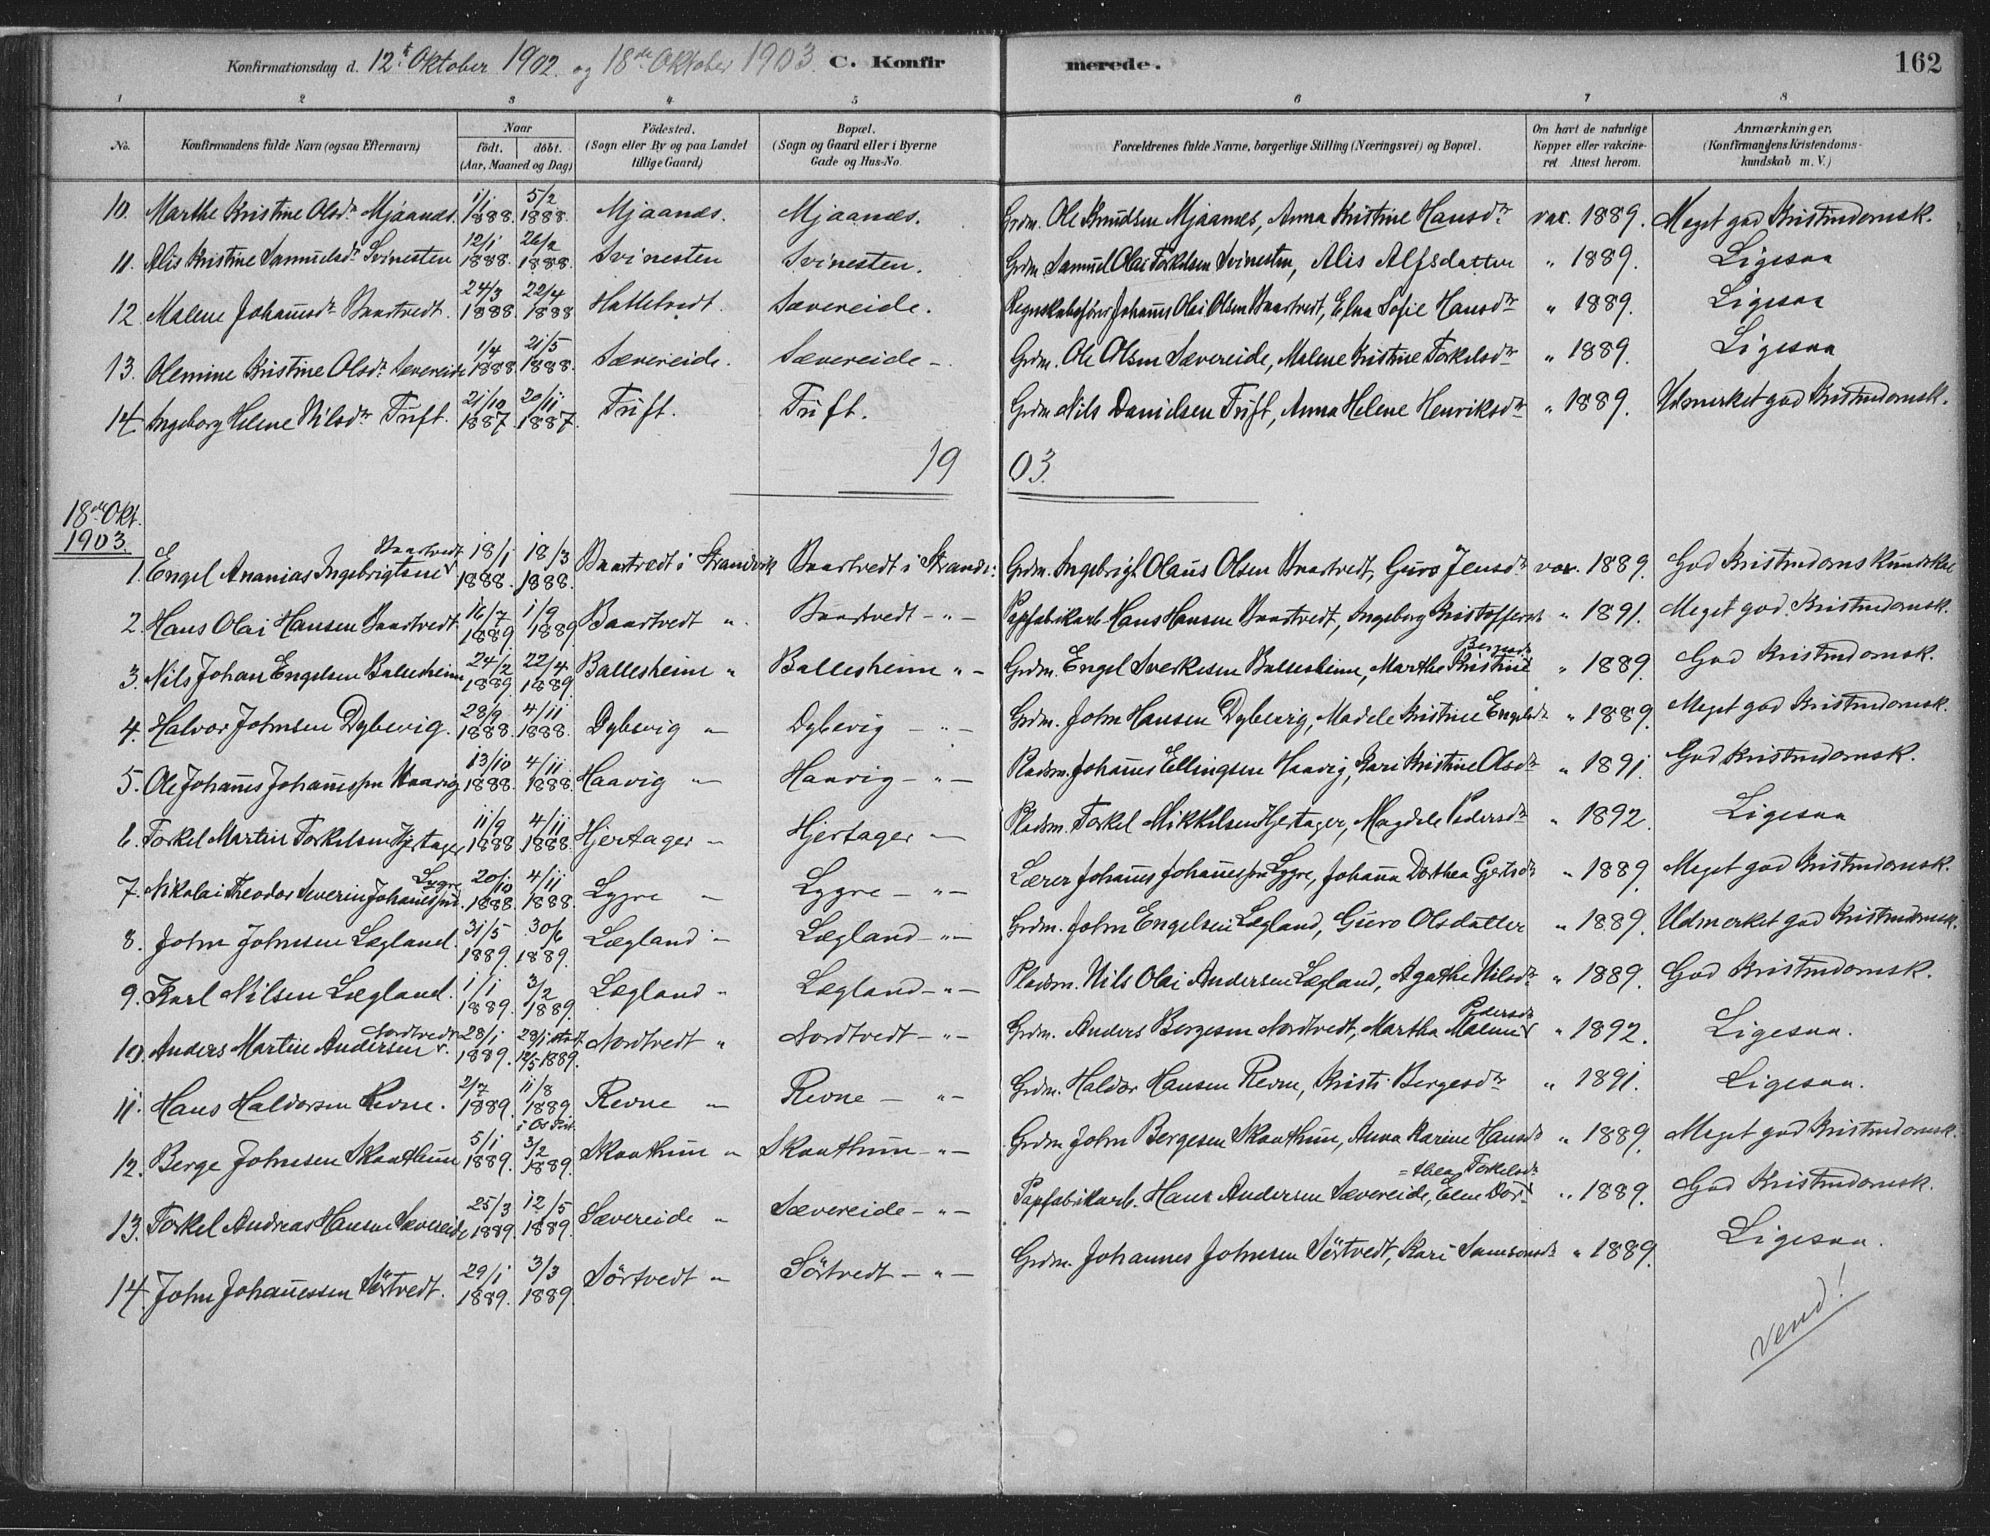 Konfirmationsdag d. 12te Oktober 1902. og 18de Oktober 1903. C. Konfirmerede. 162
1 2 3 4 5 6 7 8
No. Konfirmandens fulde Navn (ogsaa Efternavn) Naar födt. döbt. (Aar, Maaned og Dag) Födested. (Sogn eller By og paa Landet tillige Gaard) Bopæl. (Sogn og Gaard eller i Byerne Gade og Hus-No. Forældrenes fulde Navne, borgerlige Stilling (Næringsvei) og Bopæl. Om havt de naturlige Kopper eller vakcineret. Attest herom. Anmærkninger. (Konfirmandens Kristendomskundskab m. V.)
10. Marthe Kristine Olsdr. Mjaanes. 1/1 1888. 5/2 1888. Mjaanes. Mjaanes. Grdm. Ole Knudsen Mjaanes, Anna Kristine Hansdr vac. 1889. Meget god Kristendomsk.
11. Alis Kristine Samuelsdr Svinesten 12/1 1888. 26/2 1888. Svinesten Svinesten. Grdm. Samuel Olai Torkelsen Svinesten, Alis Alfsdatter " 1889. Ligesaa
12. Malene Johannesdr Baartvedt. 24/3 1888. 22/4 1888 Hatletvedt. Sævereide. Regnskabsförer Johannes Olai Olsen Baartvedt, Elna Sofie Hansdr " 1889. Ligesaa
13. Olemine Kristine Olsdr. Sævereide 1/4 1888 21/5 1888. Sævereide. Sævereide -. Grdm. Ole Olsen Sævereide, Malene Kristine Torkelsdr " 1889. Ligesaa
14. Ingeborg Helene Nilsdr Tuft. 21/10 1887. 20/11 1887. Tuft. Tuft. Grdm. Nils Danielsen Tuft, Anna Helene Henriksdr " 1889. Udmerket god Kristendomsk.
1903.
18de Okt. 1903.
1. Engel Ananias Ingebrigtsen Baartvedt 18/1 1888. 18/3 1888. Baartvedt i Strandvik Baartvedt i Strandv: Grdm. Ingebrigt Olaus Olsen Baartvedt, Guro Jensdr vac. 1889. God Kristendomskundskab
2. Hans Olai Hansen Baartvedt 16/7 1889 1/9 1889 Baartvedt " Baartvedt - " - Papfabrikarb. Hans Hansen Baartvedt, Ingeborg Kristoffersdr " 1891. Meget god Kristendomsk.
3. Nils Johan Engelsen Ballesheim 24/2 1889. 22/4 1889. Ballesheim " Ballesheim " - Grdm. Engel Sverkesen Ballesheim, Marthe Kristine " 1889. God Kristendomsk.
4. Halvor Johnsen Dybevig. 28/9 1888. 4/11 1888. Dybevig " Dybevig - " - Grdm. John Hansen Dybevig, Madele Kristine Engelsdr " 1889. Meget god Kristendomsk.
5. Ole Johannes Johannessen Haavig 13/10 1888. 4/11 1888. Haavig " Haavig - " - Pladsm. Johannes Ellingsen Haavig, Kari Kristine Olsdr " 1891. God Kristendomsk.
6. Torkel Martin Torkelsen Hjertager 11/9 1888 4/11 1888. Hjertager " Hjertager " - Pladsm. Torkel Mikkelsen Hjertager, Magdele Pedersdr " 1892. Ligesaa
7. Nikolai Theodor Severin Johannessen Lygre 20/10 1888. 4/11 1888. Lygre " Lygre - " - Lærer Johannes Johannessen Lygre, Johanna Dorthea Gjertsdr " 1889. Meget god Kristendomsk.
8. John Johnsen Lægland. 31/5 1889. 30/6 1889. Lægland " Lægland - " - Grdm. John Engelsen Lægland, Guro Olsdatter " 1889. Udmerket god Kristendomsk.
9. Karl Nilsen Lægland. 1/1 1889. 3/2 1889. Lægland " Lægland - " - Pladsm. Nils Olai Andersen Lægland, Agathe Nilsdr " 1889. God Kristendomsk.
10. Anders Martin Andersen Nordtvedt 28/1 1889. 29/1 stadf. 12/5 1889. Nordtvedt " Nordtvedt - " - Grdm. Anders Bergesen Nordtvedt, Martha Malene Pedersdr " 1892. Ligesaa.
11. Hans Haldorsen Revne. 2/7 1889. 11/8 1889. i Os Revne " Revne - " - Grdm. Haldor Hansen Revne, Kristi Bergesdr " 1891. Ligesaa.
12. Berge Johnsen Skaathun 5/1 1889. 3/2 1889. Skaathun " Skaathun - " - Grdm John Bergesen Skaathun, Anna Karine Hansdr " 1889. Meget god Kristendomsk.
13. Torkel Andreas Hansen Sævereide 25/3 1889. 12/5 1889. Sævereide " Sævereide - " - Papfabrikarb. Hans Andersen Sævereide, Elen Dor=thea Torkelsdr " 1889. God Kristendomsk.
14. John Johannessen Sörtvedt. 29/1 1889. 3/3 1889. Sörtvedt " Sörtvedt - " - Grdm. Johannes Johnsen Sörtvedt, Kari Samsonsdr " 1889. Ligesaa.
Vend!